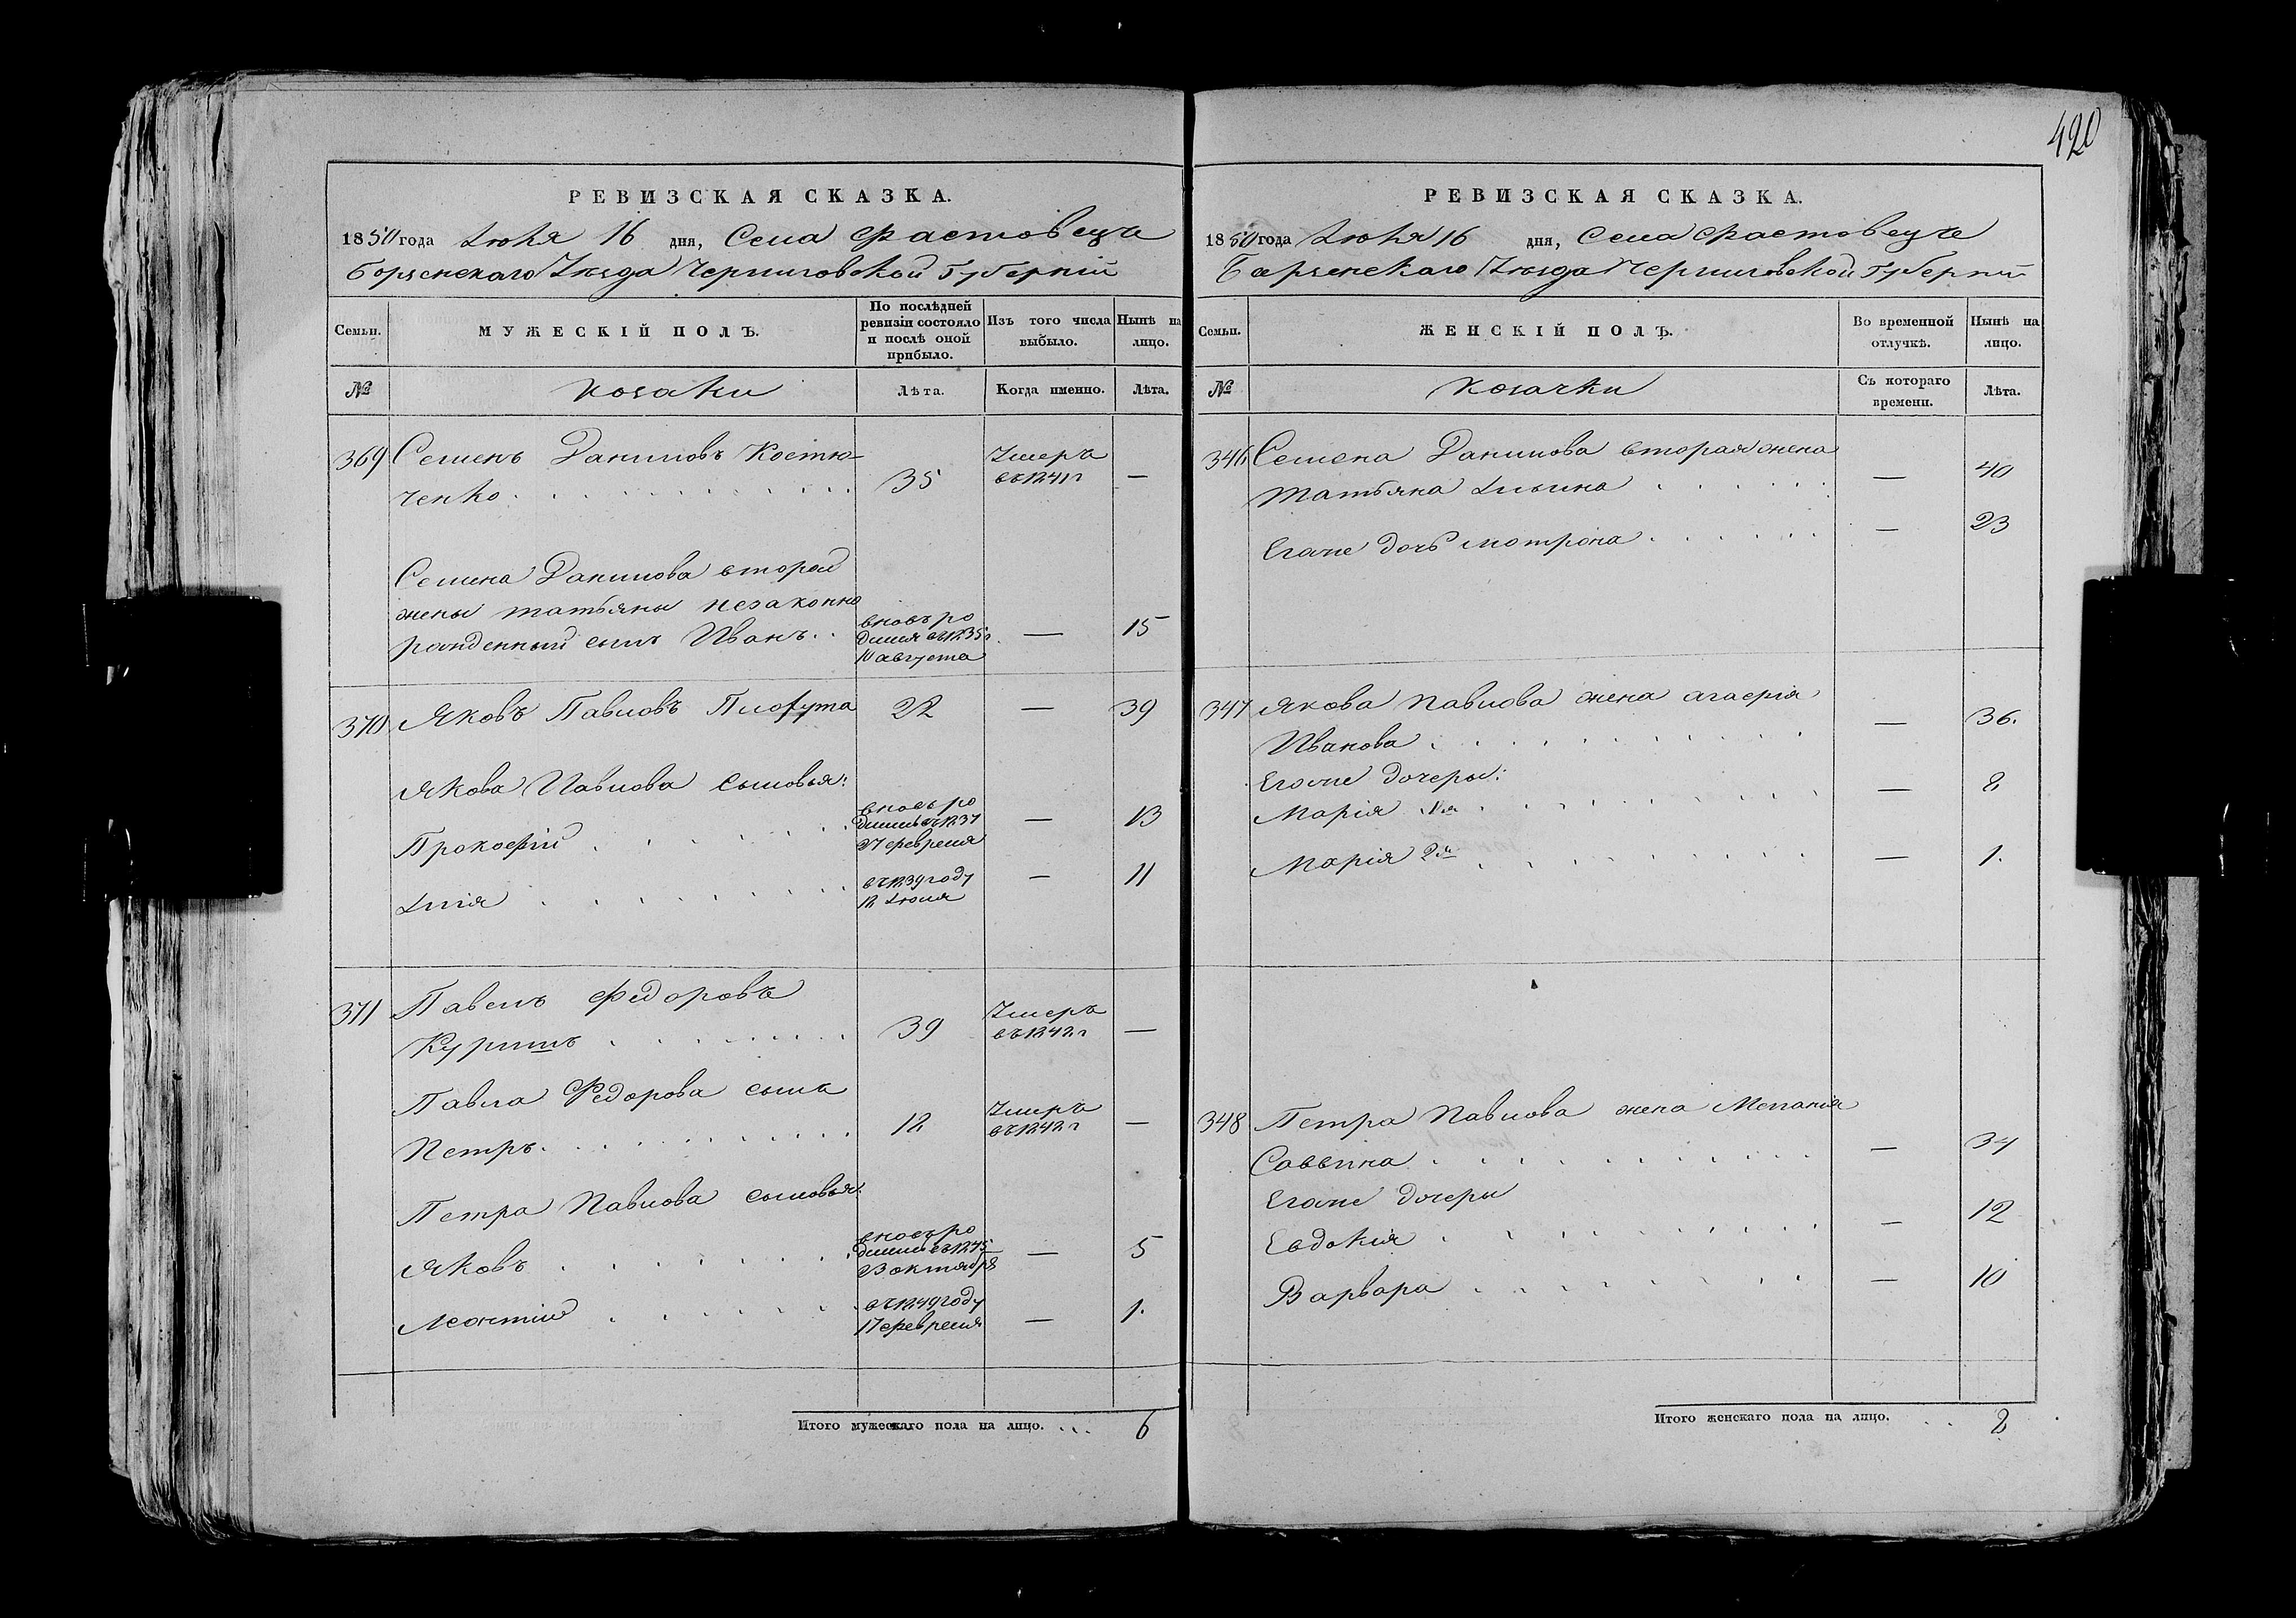 420
РЕВИЗСКАЯ СКАЗКА.
1850 года Іюня 16 дня, Села Фастовецъ
Борзенскаго Уѣзда Черниговской Губерніи
Семьи.
МУЖЕСКІЙ ПОЛЪ.
По послѣдней ревизіи состояло и послѣ оной прибыло.
Изъ того числа выбыло.
Нынѣ на лицо.
№
Козаки
Лѣта.
Когда именно.
Лѣта.
369 Семенъ Даниловъ Костю-
ченко 35 Умеръ въ 1841 г —
Семена Данилова второй
жены Татьяны незаконно
рожденный сынъ Иванъ вновь ро
дился въ 1835 г. — 15
10 августа
370 Яковъ Павловъ 22 — 39
Якова Павлова сыновья:
Прокофій вновь ро
дились въ 1837 — 13
27 февреля
Илія въ 1839 году — 11
12 Іюля
371 Павелъ Федоровъ
39 Умеръ въ 1842 г —
Павла Федорова сынъ
Петръ 12 Умеръ въ 1842 г —
Петра Павлова сыновья:
Яковъ вновь ро
дились въ 1845 — 5
3 октября
Леонтій въ 1849 году — 1.
17 февреля
Итого мужескаго пола на лицо. ... 6
РЕВИЗСКАЯ СКАЗКА.
1850 года Іюня 16 дня, Села Фастовецъ
Борзенскаго Уѣзда Черниговской Губерніи
Семьи.
ЖЕНСКІЙ ПОЛЪ.
Во временной отлучкѣ.
Нынѣ на лицо.
№
Козачки
Съ котораго времени.
Лѣта.
346 Семена Данилова вторая жена
Татьяна Ильина — 40
Его же дочь Мотрона — 23
347 Якова Павлова жена Агафія
Иванова — 36.
Его же дочеры:
Марія 1я — 8
Марія 2я — 1.
348 Петра Павлова жена Меланія
Саввина — 34
Его же дочеры
Евдокія — 12
Варвара — 10
Итого женскаго пола на лицо. .. 8